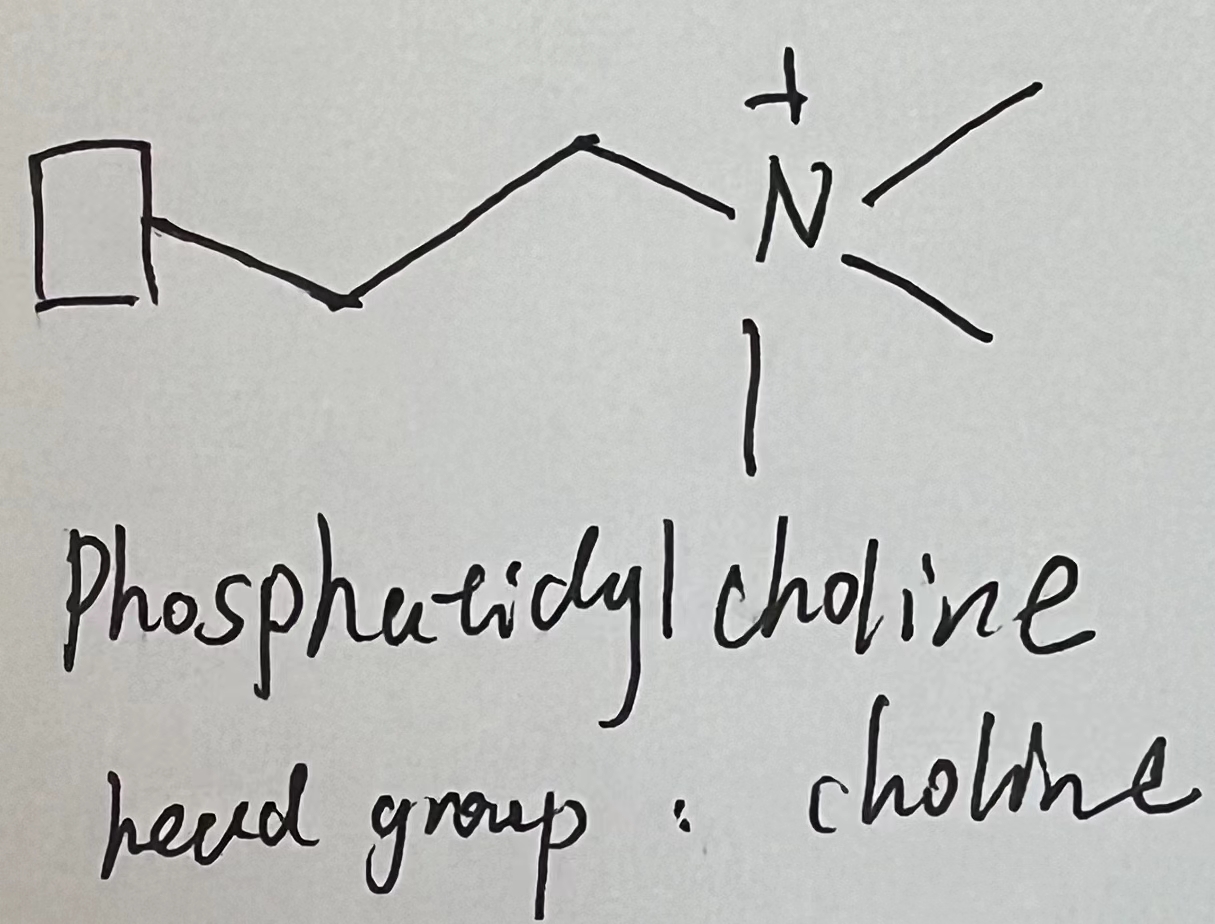 +
N
Phosphatidylcholine
head group : choline